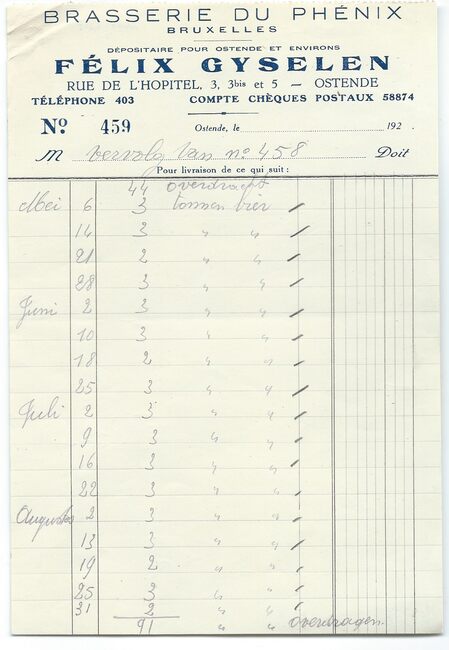 BRASSERIE DU PHÉNIX
BRUXELLES
DÉPOSITAIRE POUR OSTENDE ET ENVIRONS
FÉLIX GYSELEN
RUE DE L'HOPITEL, 3, 3bis et 5 — OSTENDE
TÉLÉPHONE 403 COMPTE CHÈQUES POSTAUX 58874
No 459 Ostende, le 192 .
M vervolg van no 458 Doit
Pour livraison de ce qui suit :
44 overdracht
Mei 6 3 tonnen bier /
14 3 " " /
21 2 " " /
28 3 " " /
Juni 2 3 " " /
10 3 " " /
18 2 " " /
25 3 " " /
Juli 2 3 " " /
9 3 " " /
16 3 " " /
22 3 " " /
Augustus 2 3 " " /
13 3 " " /
19 2 " " /
25 3 " " /
31 2 " " /
91 " " overdragen.